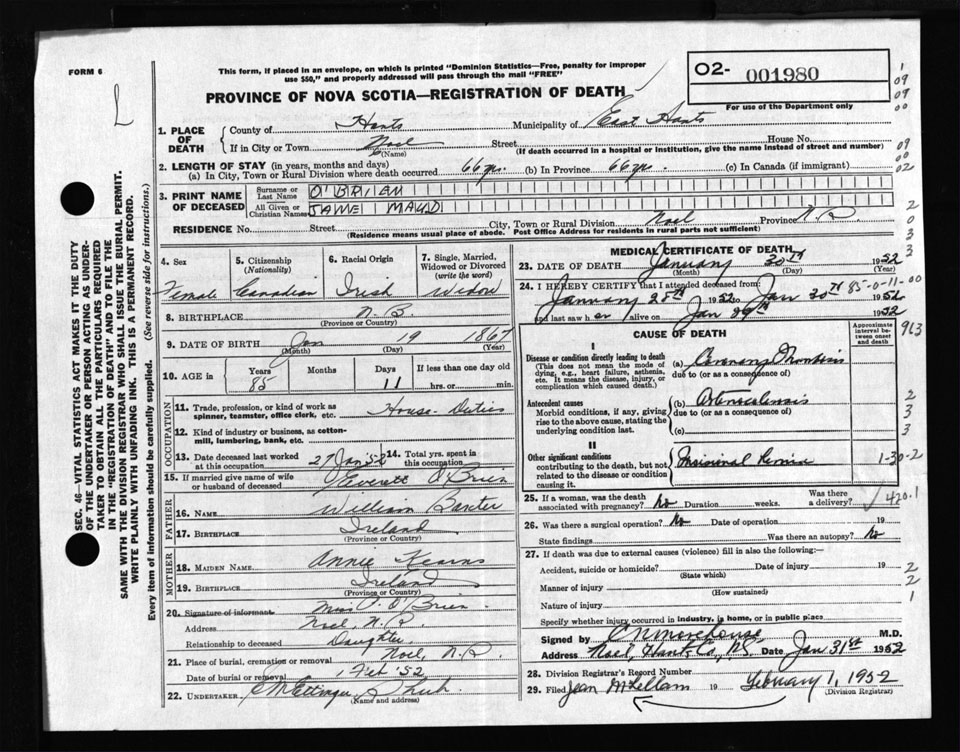 FORM 6
This form, if placed in an envelope, on which is printed "Dominion Statistics—Free, penalty for improper
use $50," and properly addressed will pass through the mail "FREE"
PROVINCE OF NOVA SCOTIA—REGISTRATION OF DEATH
02- 001980
For use of the Department only
L
1. PLACE OF DEATH
County of Hants Municipality of East Hants
If in City or Town Noel Street House No.
(Name) (If death occurred in a hospital or institution, give the name instead of street and number)
2. LENGTH OF STAY (in years, months and days)
(a) In City, Town or Rural Division where death occurred 66 yrs. (b) In Province 66 yrs. (c) In Canada (if immigrant)
3. PRINT NAME OF DECEASED
Surname or Last Name O'BRIEN
All Given or Christian Names JANE MAUD
RESIDENCE No. Street City, Town or Rural Division Noel Province
(Residence means usual place of abode. Post Office Address for residents in rural parts not sufficient)
4. Sex Female
5. Citizenship (Nationality) Canadian
6. Racial Origin Irish
7. Single, Married, Widowed or Divorced (write the word) Widow
8. BIRTHPLACE N.B.
(Province or Country)
9. DATE OF BIRTH Jan 19 1867
(Month) (Day) (Year)
10. AGE in Years 85 Months Days 11 If less than one day old hrs. or min.
OCCUPATION
11. Trade, profession, or kind of work as spinner, teamster, office clerk, etc. House-Duties
12. Kind of industry or business, as cotton-mill, lumbering, bank, etc.
13. Date deceased last worked at this occupation 27 Jan 52
14. Total yrs. spent in this occupation
15. If married give name of wife or husband of deceased Everett O'Brien
FATHER
16. NAME William Baxter
17. BIRTHPLACE Ireland
(Province or Country)
MOTHER
18. MAIDEN NAME Annie Kearns
19. BIRTHPLACE Ireland
(Province or Country)
20. Signature of informant Miss O'Brien
Address Noel, N.S.
Relationship to deceased Daughter
21. Place of burial, cremation or removal Noel, N.S.
Date of burial or removal 1 Feb '52
22. UNDERTAKER
(Name and address)
MEDICAL CERTIFICATE OF DEATH
23. DATE OF DEATH January 30th 1952
(Month) (Day) (Year)
24. I HEREBY CERTIFY that I attended deceased from:
January 28th 1952 to Jan 30th 1952
85-0-11-00
and last saw her alive on Jan 29th 1952
CAUSE OF DEATH
Approximate interval between onset and death
I
Disease or condition directly leading to death
(This does not mean the mode of dying, e.g., heart failure, asthenia, etc. It means the disease, injury, or complication which caused death.)
(a) Coronary Thrombosis
due to (or as a consequence of)
Antecedent causes
Morbid conditions, if any, giving rise to the above cause, stating the underlying condition last.
(b)
due to (or as a consequence of)
(c)
II
Other significant conditions
contributing to the death, but not related to the disease or condition causing it.
Hernia
1-30-2
25. If a woman, was the death associated with pregnancy? No Duration weeks. Was there a delivery?
420.1
26. Was there a surgical operation? No Date of operation 19
State findings Was there an autopsy? No
27. If death was due to external causes (violence) fill in also the following:—
Accident, suicide or homicide? Date of injury 19
(State which)
Manner of injury
(How sustained)
Nature of injury
Specify whether injury occurred in industry, in home, or in public place
Signed by C N Morehouse M.D.
Address Noel, Hants Co, N.S. Date Jan 31st 1952
28. Division Registrar's Record Number
29. Filed Jean McLellan 19 February 1, 1952
(Division Registrar)
SEC. 46—VITAL STATISTICS ACT MAKES IT THE DUTY
OF THE UNDERTAKER OR PERSON ACTING AS UNDER-
TAKER TO OBTAIN ALL THE PARTICULARS REQUIRED
IN THE "REGISTRATION OF DEATH" AND TO FILE THE
SAME WITH THE DIVISION REGISTRAR WHO SHALL ISSUE THE BURIAL PERMIT.
WRITE PLAINLY WITH UNFADING INK. THIS IS A PERMANENT RECORD.
Every item of information should be carefully supplied. (See reverse side for instructions.)
1
09
09
00
09
00
02
2
0
3
3
2
963
2
3
3
2
2
1